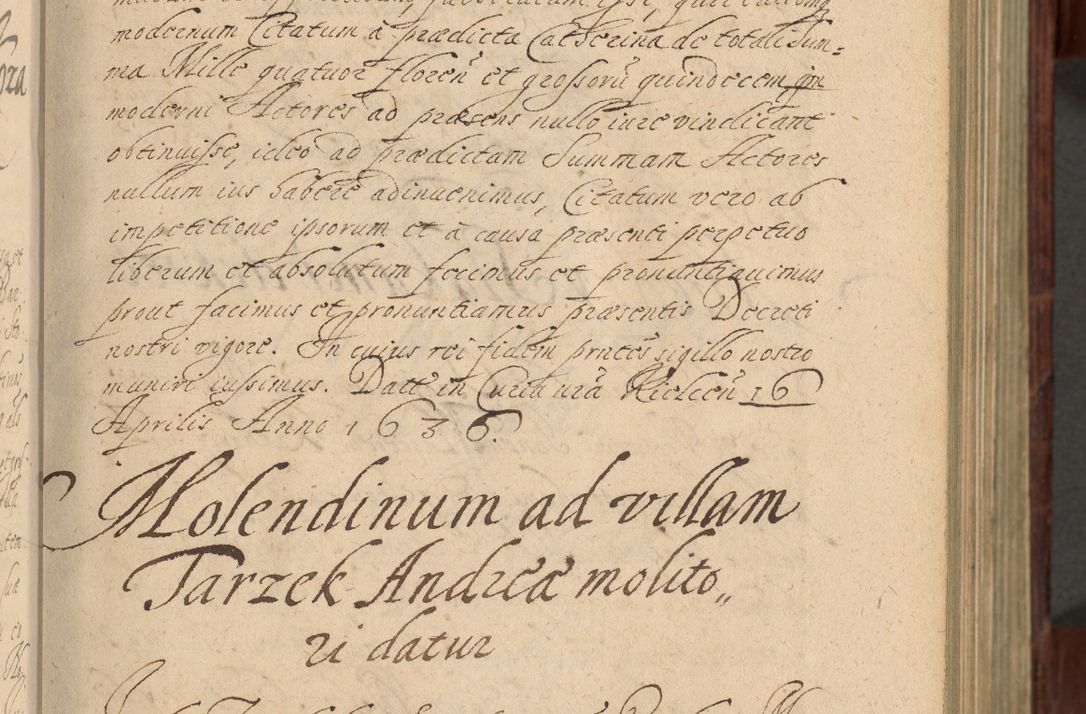 modernum Citatum à prædicta Catherina de totali Sum=
ma Mille quatuor floren̄ et grossorū quindecem
moderni Actores ad præsens nullo iure vindicant
obtinuisse, ideo ad prædictam Summam Actores
nullum ius habere adinuenimus, Citatum vero ab
impetitione ipsorum et à causa præsenti perpetuo
liberum et absolutum fecimus et pronuntiauimus
prout facimus et pronuntiamus præsentis Decreti
nostri vigore. In cuius rei fidem prntēs sigillo nostro
muniri iussimus. Datt in Curia nr̃a Kielcen̄ 16
Aprilis Anno 1636.
Molendinum ad villam
Tarzek Andreæ molito„
ri datur